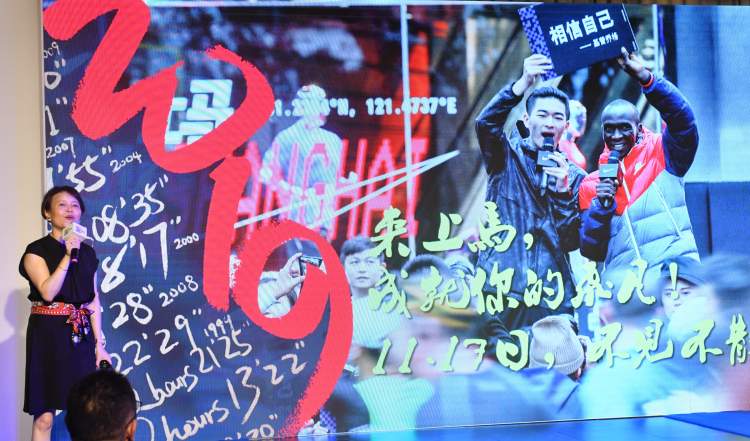 2019
2009
0
1
2007
'55"
2004
08'35"
8'17"
2000
28"
2008
22'29"
1999
2 hours 21'25
hours 13'22"
20"
121.4737°E
相信自己
来上馬，
成就你的非凡！
11.17日，不見不散